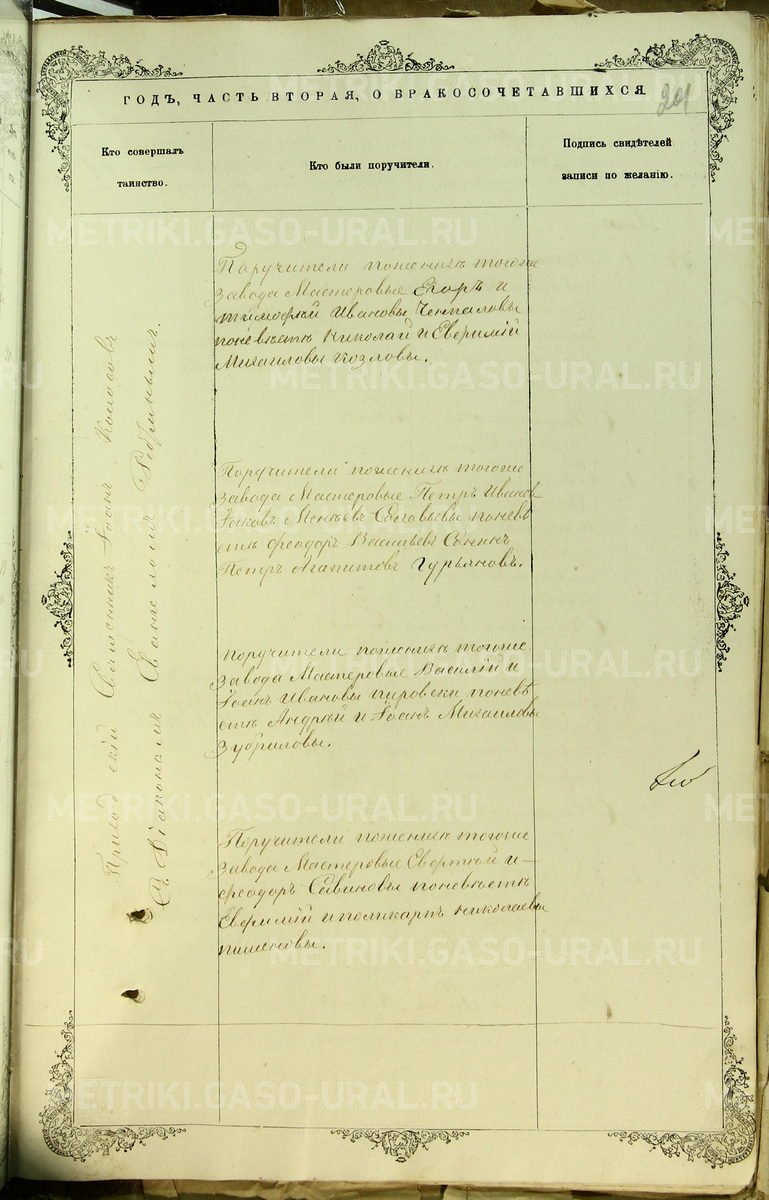 ГОДЪ, ЧАСТЬ ВТОРАЯ, О БРАКОСОЧЕТАВШИХСЯ
201
Кто совершалъ
таинство.
Кто были поручители.
Подпись свидѣтелей
записи по желанію.
Священникъ Іоаннъ
Съ Діакономъ
Поручители по женихѣ тогоже
завода Мастеровые Егоръ и
Тимофѣй Ивановы
по невѣстѣ Николай и Евфимій
Михаиловы Козловы.
Поручители по женихѣ тогоже
завода Мастеровые Петръ Иванов
Яковъ Соловьевы по невѣ
стѣ Феодоръ Васильевъ Сонинъ
Петръ Агапитовъ Гурьяновъ.
Поручители по женихѣ тогоже
завода Мастеровые Василій и
Іоаннъ Ивановы по невѣ
стѣ Андрей и Іоаннъ Михаиловы
Зубриловы.
Поручители по женихѣ тогоже
завода Мастеровые и
Феодоръ Савиновы по невѣстѣ
Евфимій и Поликарпъ Николаевы
Пименовы.
METRIKI.GASO-URAL.RU